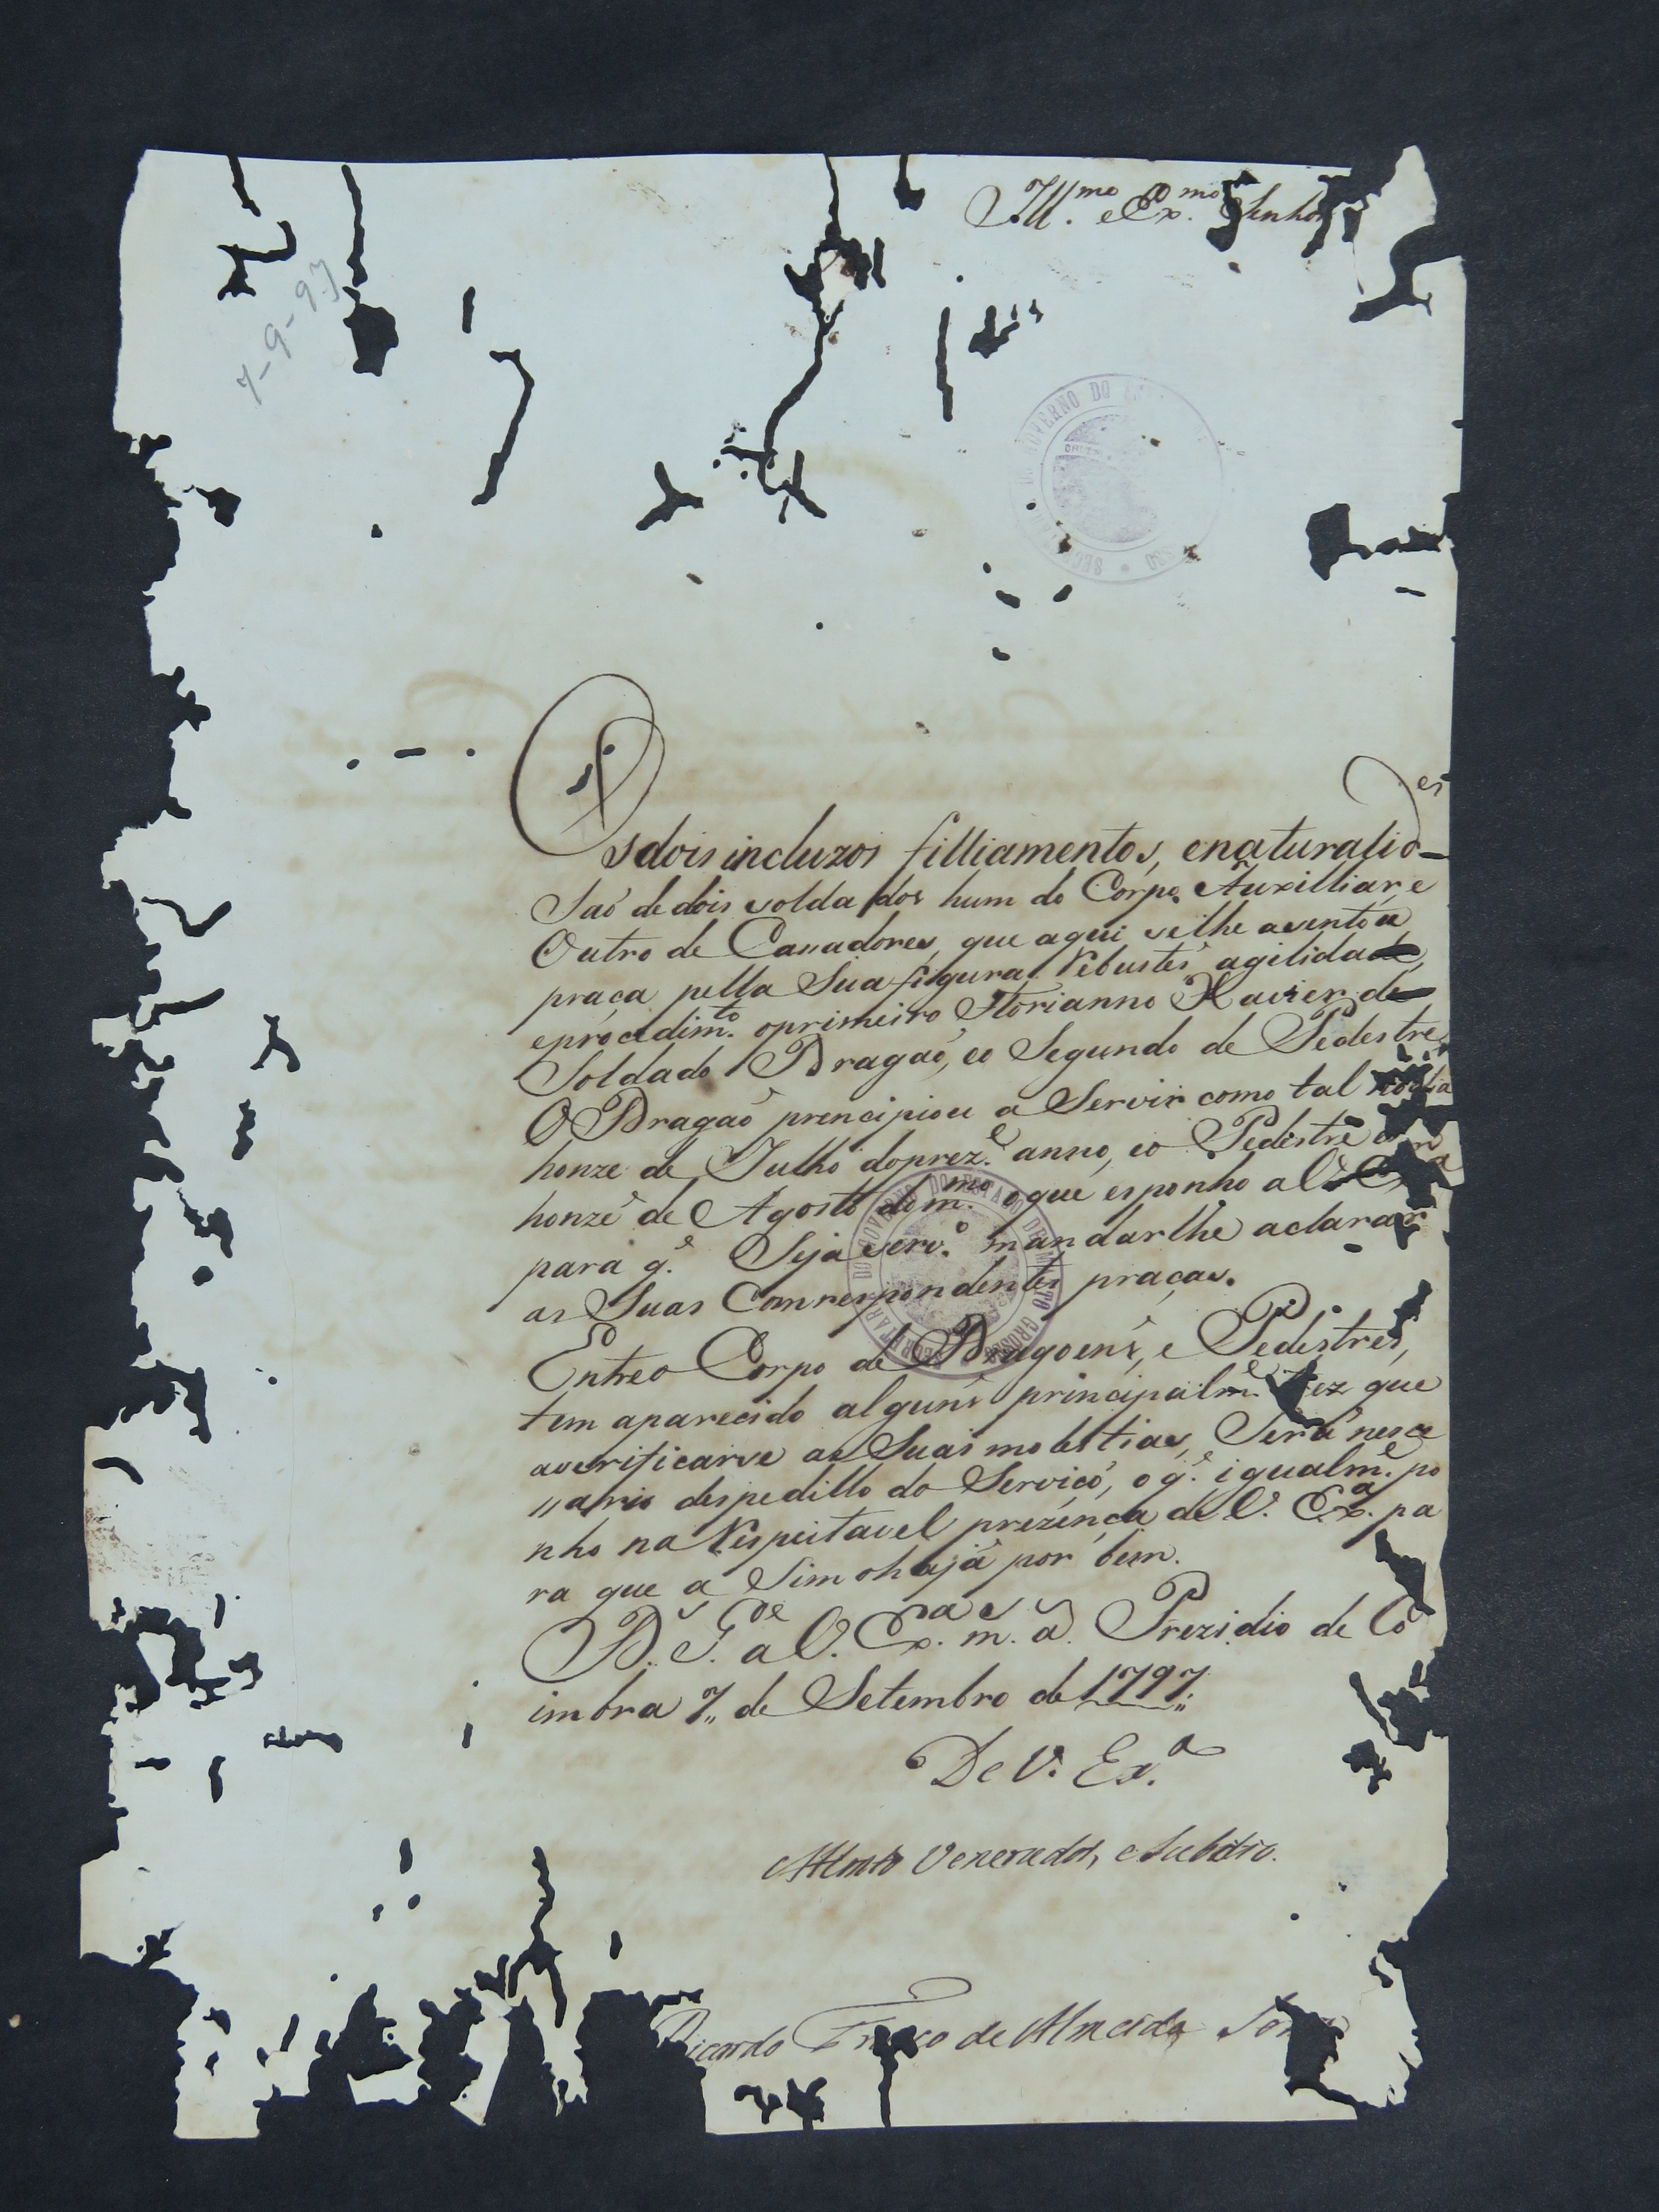 Ill.mo e Ex.mo Senhor
7-9-97
Os dois incluzos filliamentos, enaturalid.es
Saó de dois soldados hum do Corpo Auxilliar, e
Outro de Cassadores, que aqui selhe asentou
praça pella Sua figura, Rebustés agilidade,
eprocedim.to oprimeiro Florianno Xavier de
Soldado Dragaó, eo Segundo de Pedestre,
O Dragaó principiou a Servir como tal no dia
honze de Julho doprez.e anno, eo Pedestre em
honze de Agosto dom.mo oque exponho a V. Ex.a
para q.e Seja serv.o mandarlhe aclarar
as Suas Conrespondentes praças.
Entreo Corpo de Dragoens, e Pedestres,
tem aparecido alguns principalm.e vez que
averificarse as Suas molestias, Será nesce
ssario despedillo do Servico, oq.e igualm.e po
nho na Respeitavel prezença de V. Ex.a pa
ra que a Sim ohaja por bem.
D.s G.de a V. Ex.a m.s a.s Prezidio de Co
imbra 7,, de Setembro de 1797,,
De V. Ex.a
Attento Venerador, eSubdito.
Ricardo Franco de Almeida Serra
SECRETARIA DO GOVERNO DO ESTADO DE MATTO GROSSO